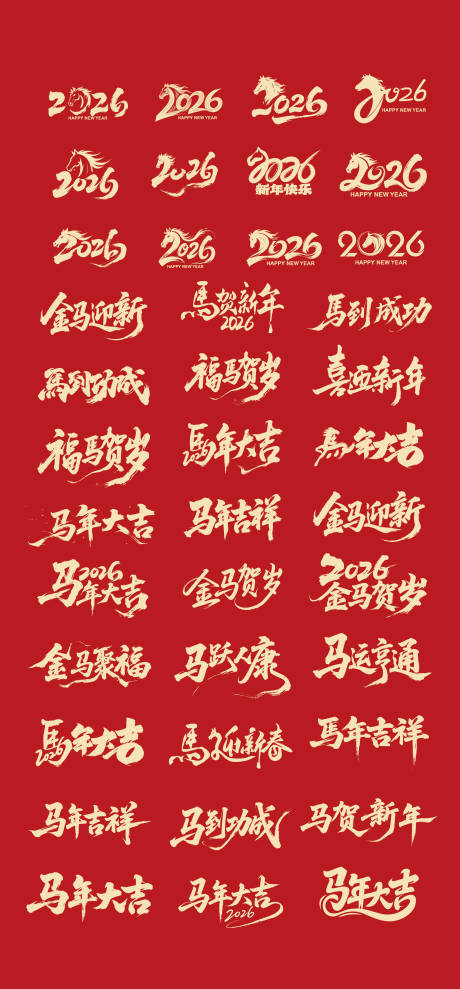 2026
HAPPY NEW YEAR
2026
HAPPY NEW YEAR
2026
2026
HAPPY NEW YEAR
2026
2026
2026
新年快乐
2026
HAPPY NEW YEAR
2026
2026
HAPPY NEW YEAR
2026
HAPPY NEW YEAR
2026
HAPPY NEW YEAR
金马迎新
馬贺新年
2026
馬到成功
馬到功成
福馬贺岁
喜迎新年
福馬贺岁
馬年大吉
馬年大吉
马年大吉
马年吉祥
金马迎新
马年大吉
2026
金马贺岁
2026
金马贺岁
金马聚福
马跃人康
马运亨通
馬年大吉
馬迎新春
馬年吉祥
马年吉祥
马到功成
马贺新年
马年大吉
马年大吉
2026
马年大吉